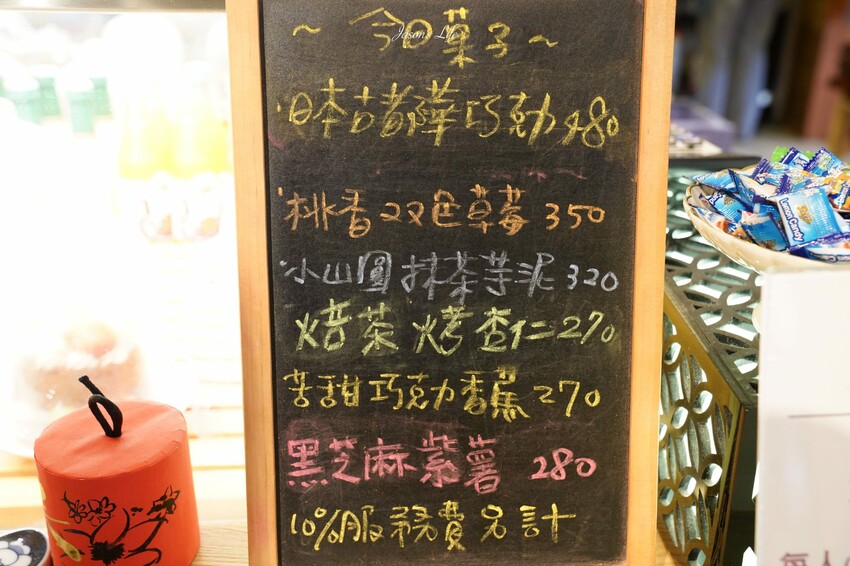 ~ 今日菓子 ~
Jason's Life
日本古者薩巧克力 480
桃香双色草莓 350
小山園抹茶芋泥 320
焙茶烤杏仁 270
苦甜巧克力香蕉 270
黑芝麻紫薯 280
10%服務費另計
Lemon Candy
每人